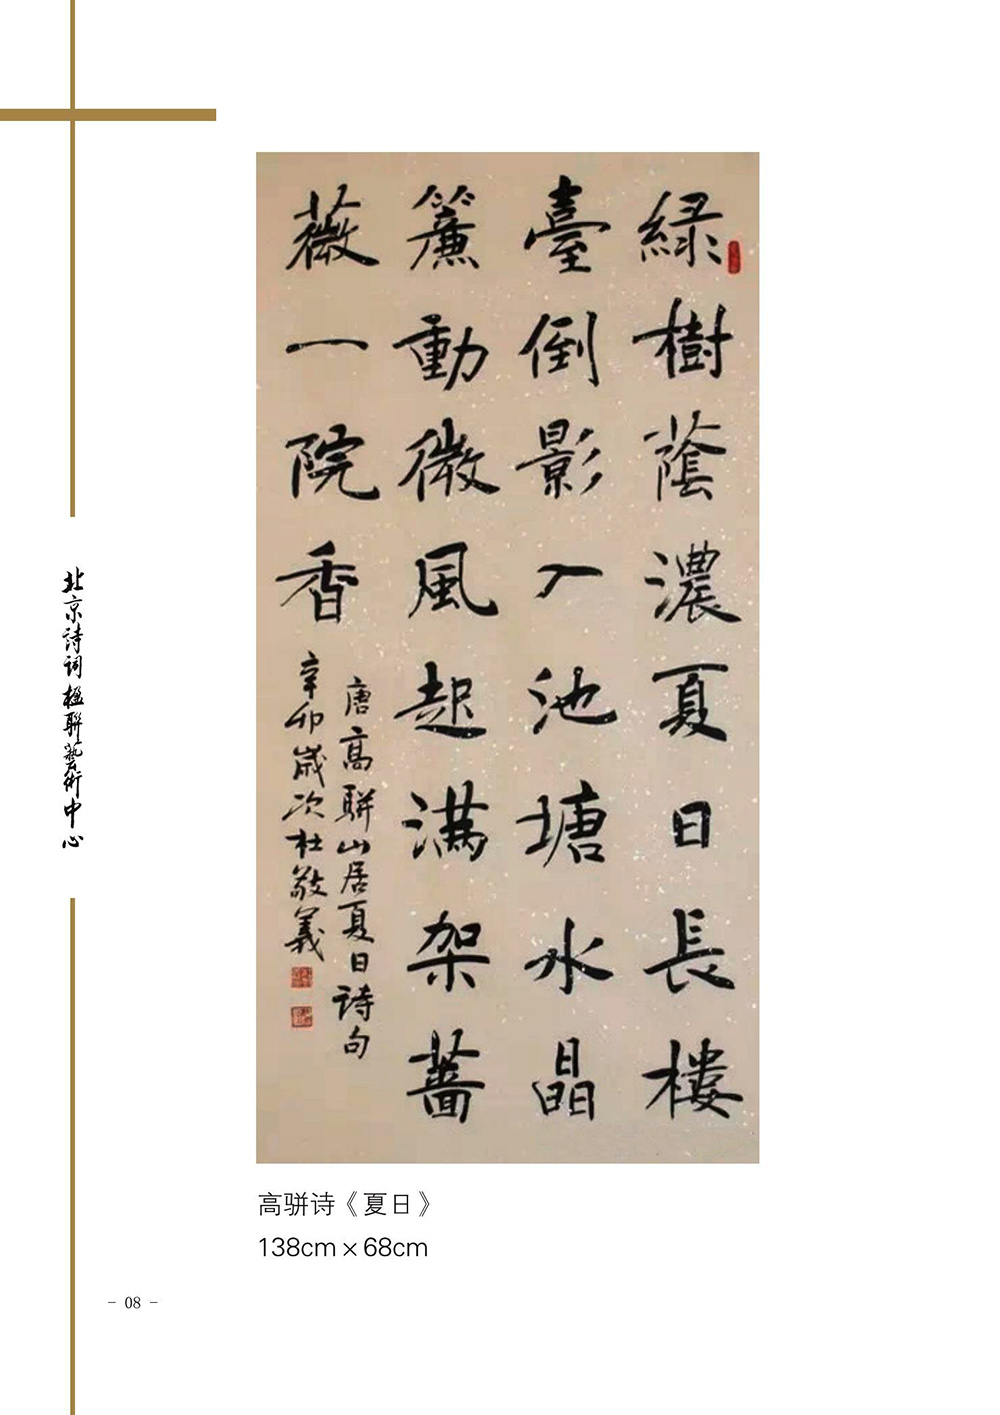 綠樹蔭濃夏日長樓
臺倒影入池塘水晶
簾動微風起满架薔
薇一院香
唐高駢山居夏日詩句
辛卯歲次杜敬義
北京詩詞楹聯藝術中心
高骈诗《夏日》
138cm×68cm
- 08 -